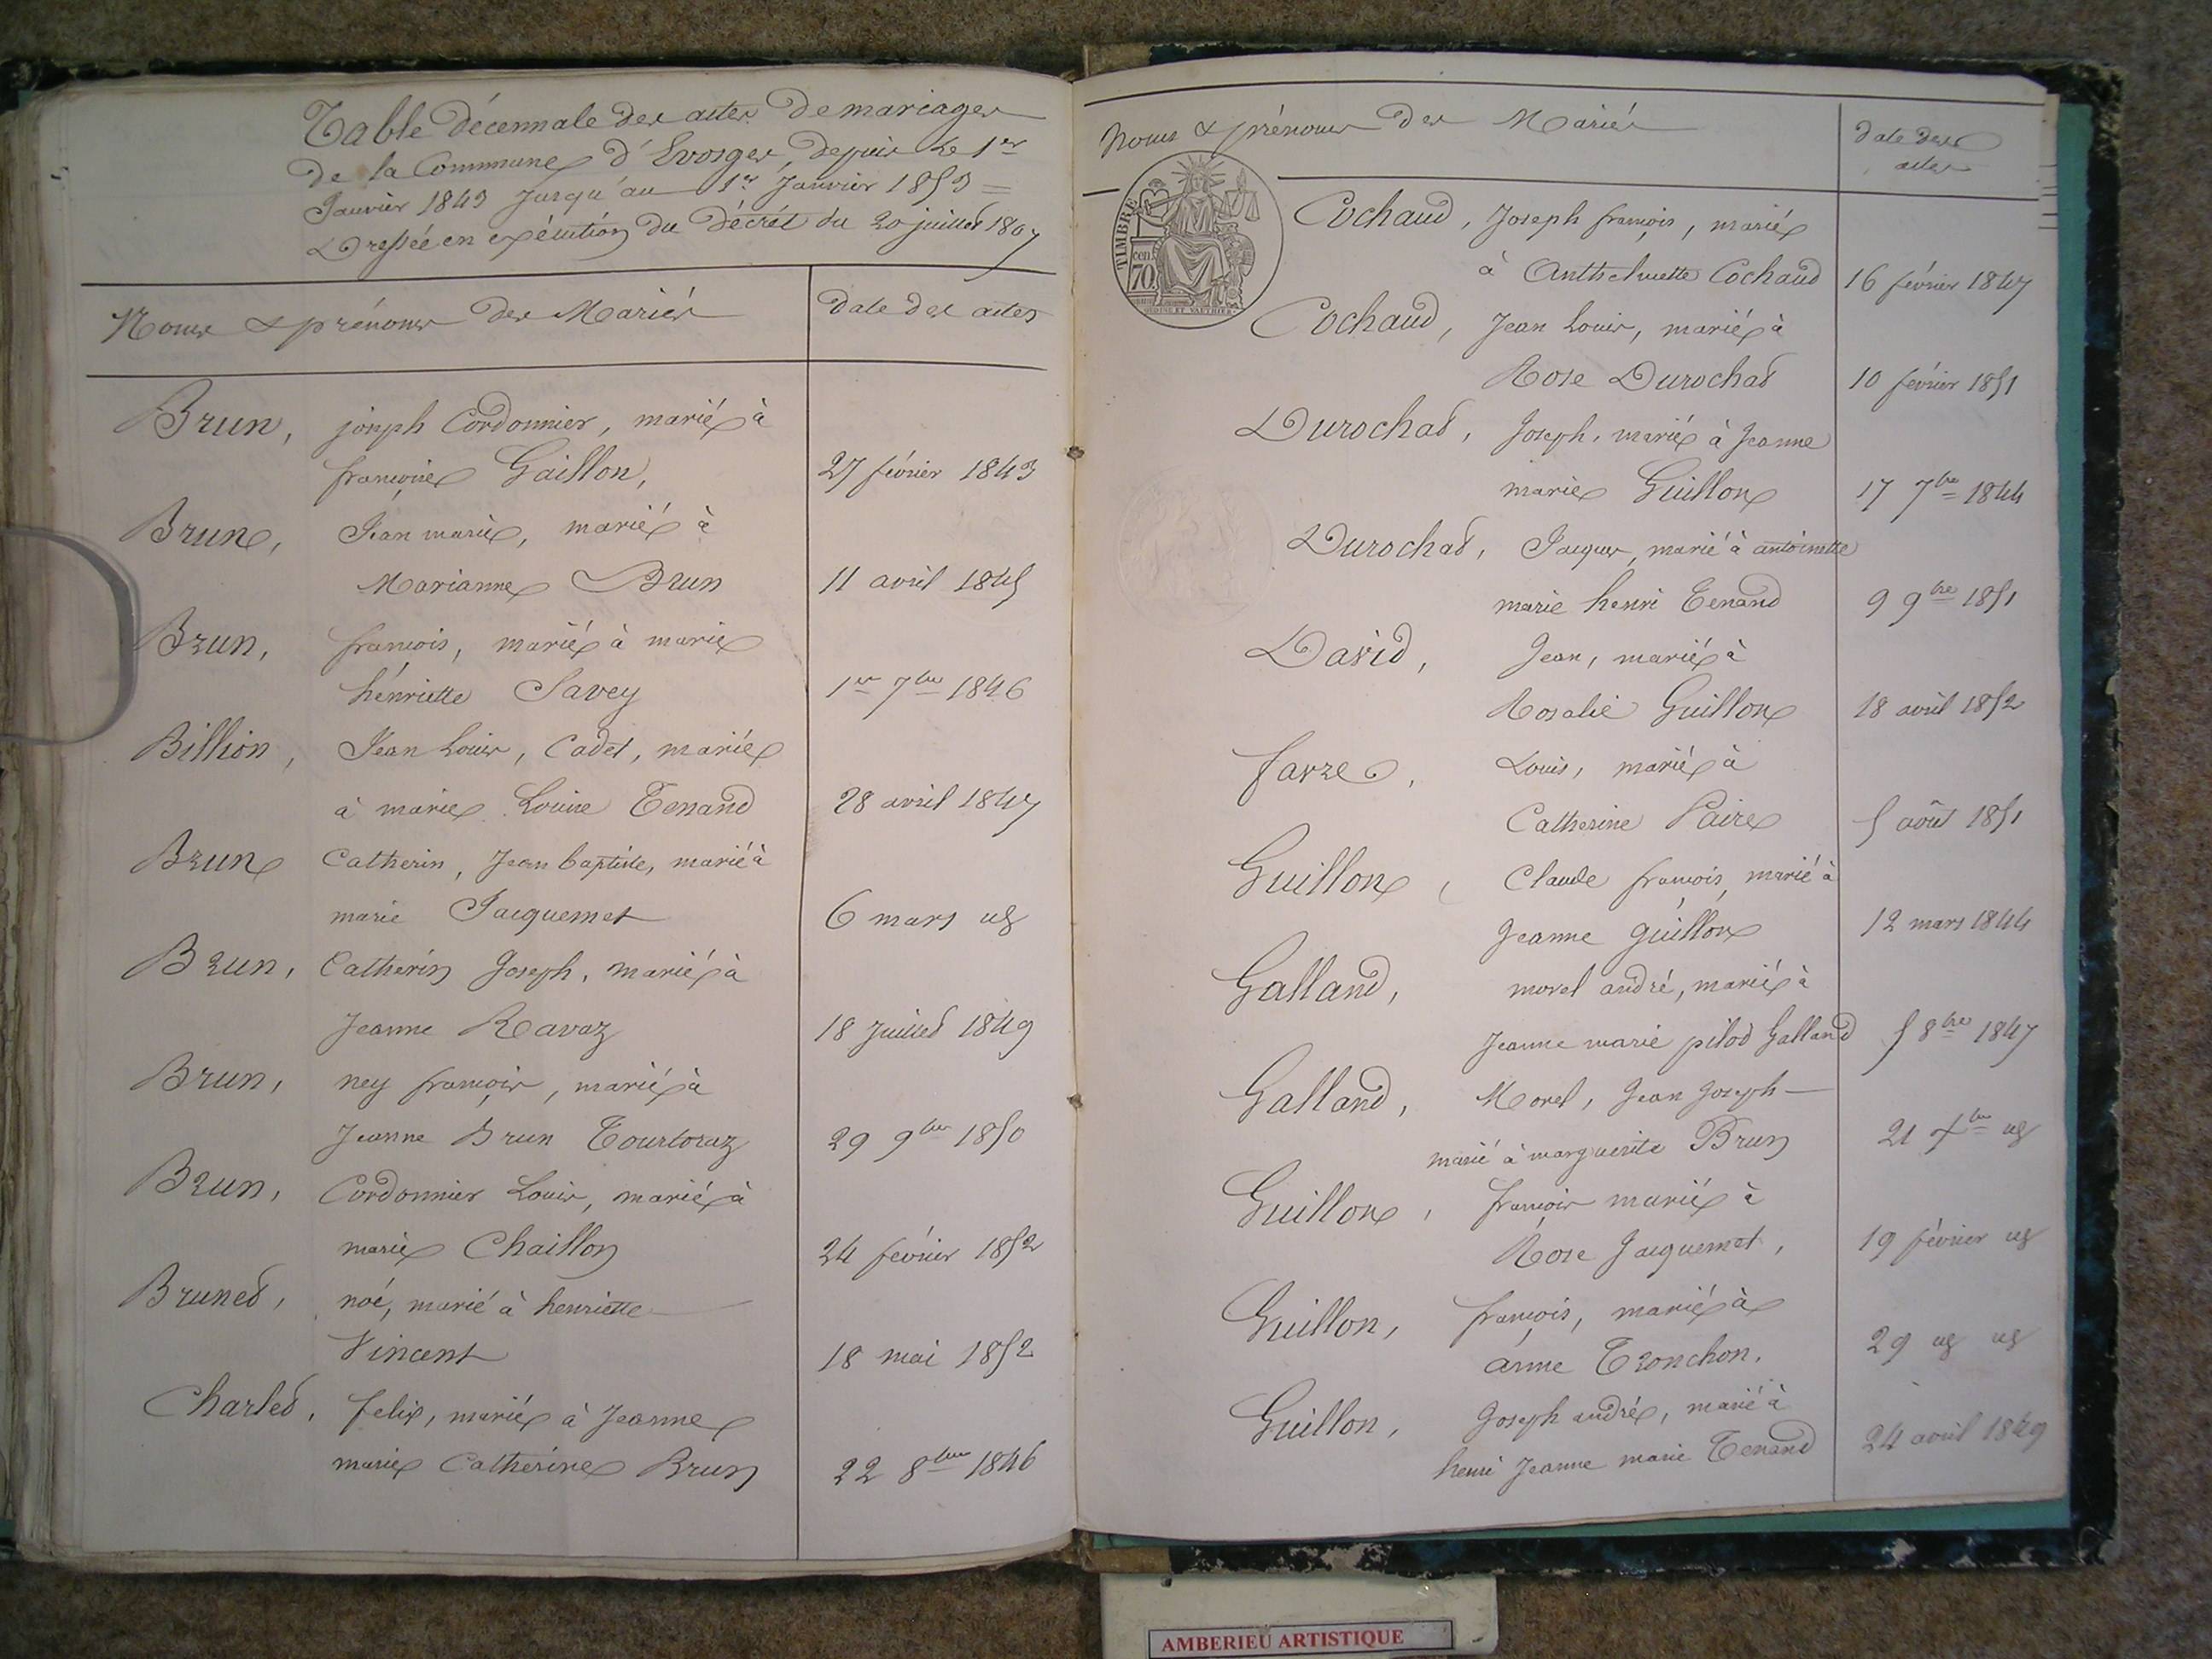 Table décennale des actes de mariages
de la Commune d'Evosges, depuis le 1er
Janvier 1843 jusqu'au 1er Janvier 1853 =
Dressée en exécution du Décret du 20 juillet 1807
Noms & prénoms des Mariés
date des actes
Brun, joseph Cordonnier, marié à
françoise Gaillon, 27 février 1843
Brun, Jean marie, marié à
Marianne Brun 11 avril 1845
Brun, françois, marié à marie
hénriette Savey 1er 7bre 1846
Billion, Jean Louis, Cadet, marié
à marie Louise Tenand 28 avril 1847
Brun Catherin, Jean baptiste, marié à
marie Jacquemet 6 mars
Brun, Catherin Joseph, marié à
Jeanne Ravaz 18 Juillet 1849
Brun, ney françois, marié à
Jeanne Brun Tourtoraz 29 9bre 1850
Brun, Cordonnier Louis, marié à
marie Chaillon 24 février 1852
Brunet, noé, marié à henriette
Vincent 18 mai 1852
Charlet, felix, marié à Jeanne
marie Catherine Brun 22 8bre 1846
Noms & prénoms des Mariés
date des
actes
TIMBRE
cen
70.
Cochaud, Joseph françois, marié
à Anthelmette Cochaud 16 février 1847
Cochaud, Jean Louis, marié à
Rose Durochat 10 février 1851
Durochat, Joseph, marié à Jeanne
marie Guillon 17 7bre 1844
Durochat, Jacques, marié à antoinette
marie henri Tenand 9 9bre 1851
David, Jean, marié à
Rosalie Guillon 18 avril 1852
favre, Louis, marié à
Catherine Paire 5 août 1851
Guillon, Claude françois, marié à
Jeanne guillon 12 mars 1844
Galland, morel andré, marié à
Jeanne marie pilod Galland 5 8bre 1847
Galland, Morel, Jean Joseph
marié à marguerite Brun 21
Guillon, françois marié à
Rose Jacquemet, 19 février
Guillon, françois, marié à
anne Tronchon. 29
Guillon, Joseph andré, marié à
henri Jeanne marie Tenand 24 avril 1849
AMBERIEU ARTISTIQUE